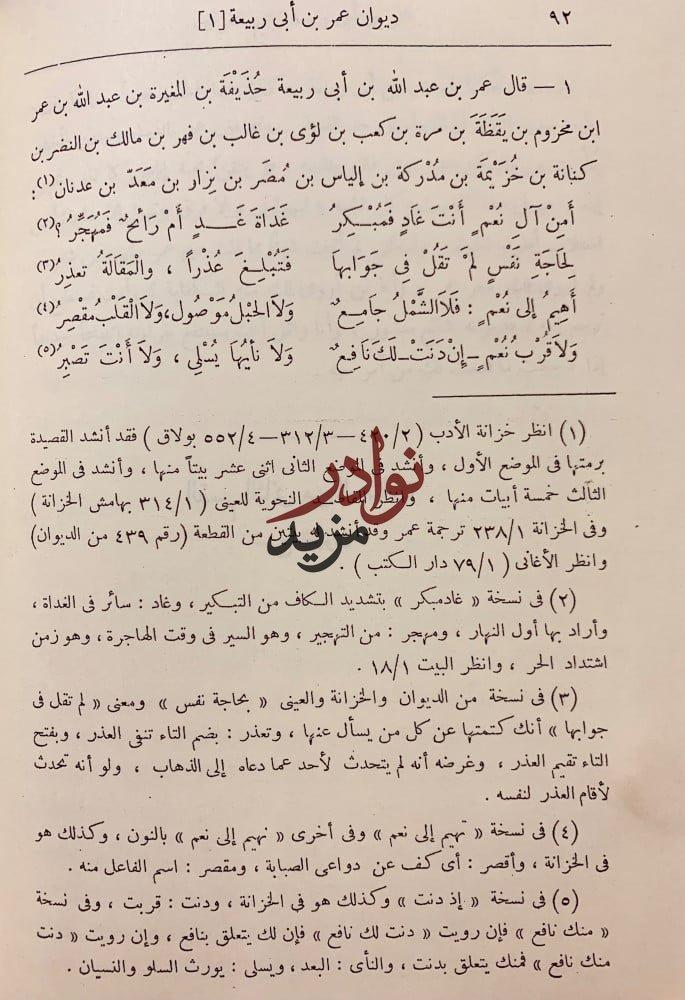 ٩٢ ديوان عمر بن أبى ربيعة [١]
١ — قال عمر بن عبد الله بن أبى ربيعة حُذَيْفَة بن المغيرة بن عبد الله بن عمر
ابن مخزوم بن يَقَظَةَ بن مرة بن كعب بن لؤى بن غالب بن فهر بن مالك بن النضر بن
كنانة بن خُزَيْمَة بن مُدْرِكة بن إلياس بن مُضَر بن نِزار بن مَعَدّ بن عدنان(١):
أَمِنْ آلِ نُعْمٍ أَنْتَ غَادٍ فَمُبْكِرُ غَدَاةَ غَدٍ أَمْ رَائِحٌ فَمُهَجِّرُ؟(٢)
لِحَاجَةِ نَفْسٍ لَمْ تَقُلْ فِى جَوَابِها فَتُبْلِغَ عُذْراً ، والْمَقَالَةُ تعذِرُ(٣)
أَهِيمُ إلى نُعْمٍ : فَلاَ الشَّمْلُ جَامِعٌ وَلاَ الحَبْلُ مَوْصُول، وَلاَ الْقَلْبُ مُقْصِرُ(٤)
وَلاَ قُرْبُ نُعْمٍ – إِنْ دَنَتْ – لَكَ نَافِعٌ وَلاَ نَأْيُهَا يُسْلِي ، وَلاَ أَنْتَ تَصْبِرُ(٥)
(١) انظر خزانة الأدب (٤٢٠/٢ — ٣١٢/٣ — ٥٥٢/٤ بولاق) فقد أنشد القصيدة
برمتها فى الموضع الأول ، وأنشد فى الموضع الثانى اثنى عشر بيتاً منها ، وأنشد فى الموضع
الثالث خمسة أبيات منها ، وانظر المقاصد النحوية للعينى (٣١٤/١ بهامش الخزانة)
وفى الخزانة ٢٣٨/١ ترجمة عمر وقد أنشد له بيتين من القطعة (رقم ٤٣٩ من الديوان)
وانظر الأغانى (٧٩/١ دار الكتب) .
(٢) فى نسخة « غاد مبكر » بتشديد الكاف من التبكير ، وغاد : سائر فى الغداة ،
وأراد بها أول النهار ، ومهجر : من التهجير ، وهو السير فى وقت الهاجرة ، وهو زمن
اشتداد الحر ، وانظر البيت ١٨/١ .
(٣) فى نسخة من الديوان والخزانة والعينى « بحاجة نفس » ومعنى « لم تقل فى
جوابها » أنك كتمتها عن كل من يسأل عنها ، وتعذر : بضم التاء تنفى العذر ، وبفتح
التاء تقيم العذر ، وغرضه أنه لم يتحدث لأحد عما دعاه إلى الذهاب ، ولو أنه تحدث
لأقام العذر لنفسه .
(٤) فى نسخة « تهيم إلى نعم » وفى أخرى « نهيم إلى نعم » بالنون ، وكذلك هو
فى الخزانة ، وأقصر : أى كف عن دواعى الصبابة ، ومقصر : اسم الفاعل منه .
(٥) فى نسخة « إذ دنت » وكذلك هو فى الخزانة ، ودنت : قربت ، وفى نسخة
« منك نافع » فإن رويت « دنت لك نافع » فإن لك يتعلق بنافع ، وإن رويت « دنت
منك نافع » فمنك يتعلق بدنت ، والنأى : البعد ، ويسلى : يورث السلو والنسيان .
نوادر
مزيد